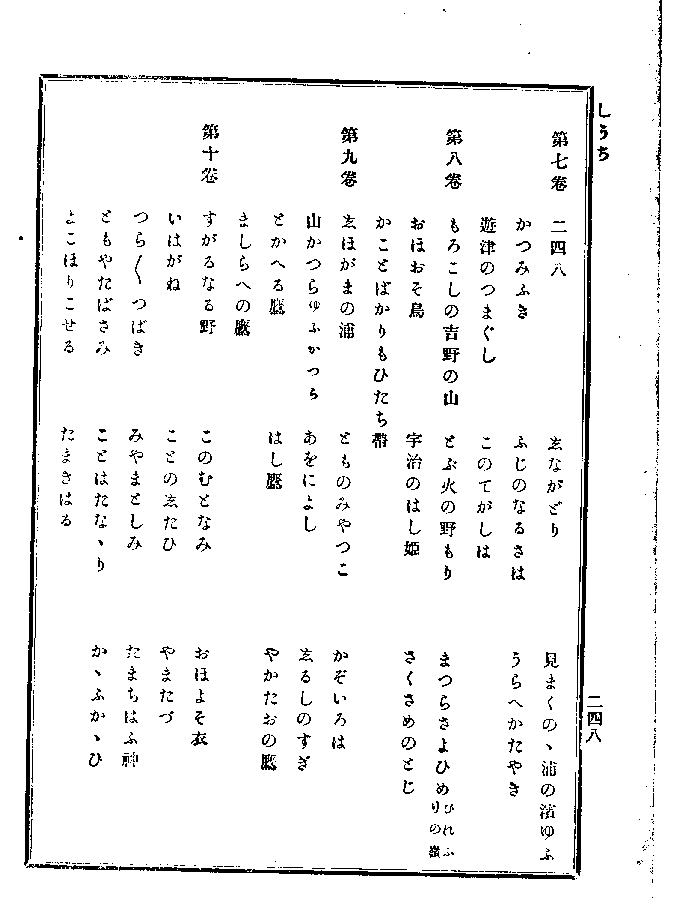 しうち
二四八
第七卷 二四八 ゑながどり 見まくのヽ浦の濱ゆふ
かつみふき ふじのなるさは うらへかたやき
遊津のつまぐし このてがしは
第八卷 もろこしの吉野の山 とぶ火の野もり まつらさよひめひれふりの嶺
おほおそ鳥 宇治のはし姫 さくさめのとじ
かことばかりもひたち帶
第九卷 ゑほがまの浦 とものみやつこ かぞいろは
山かつらゆふかつら あをによし ゑるしのすぎ
とかへる鷹 はし鷹 やかたおの鷹
ましらへの鷹
第十卷 すがるなる野 このむとなみ おほよそ衣
いはがね ことのゑたひ やまたづ
つら〱つばき みやまとしみ たまちはふ神
ともやたばさみ ことはたなヽり かヽふかヽひ
よこほりこせる たまきはる